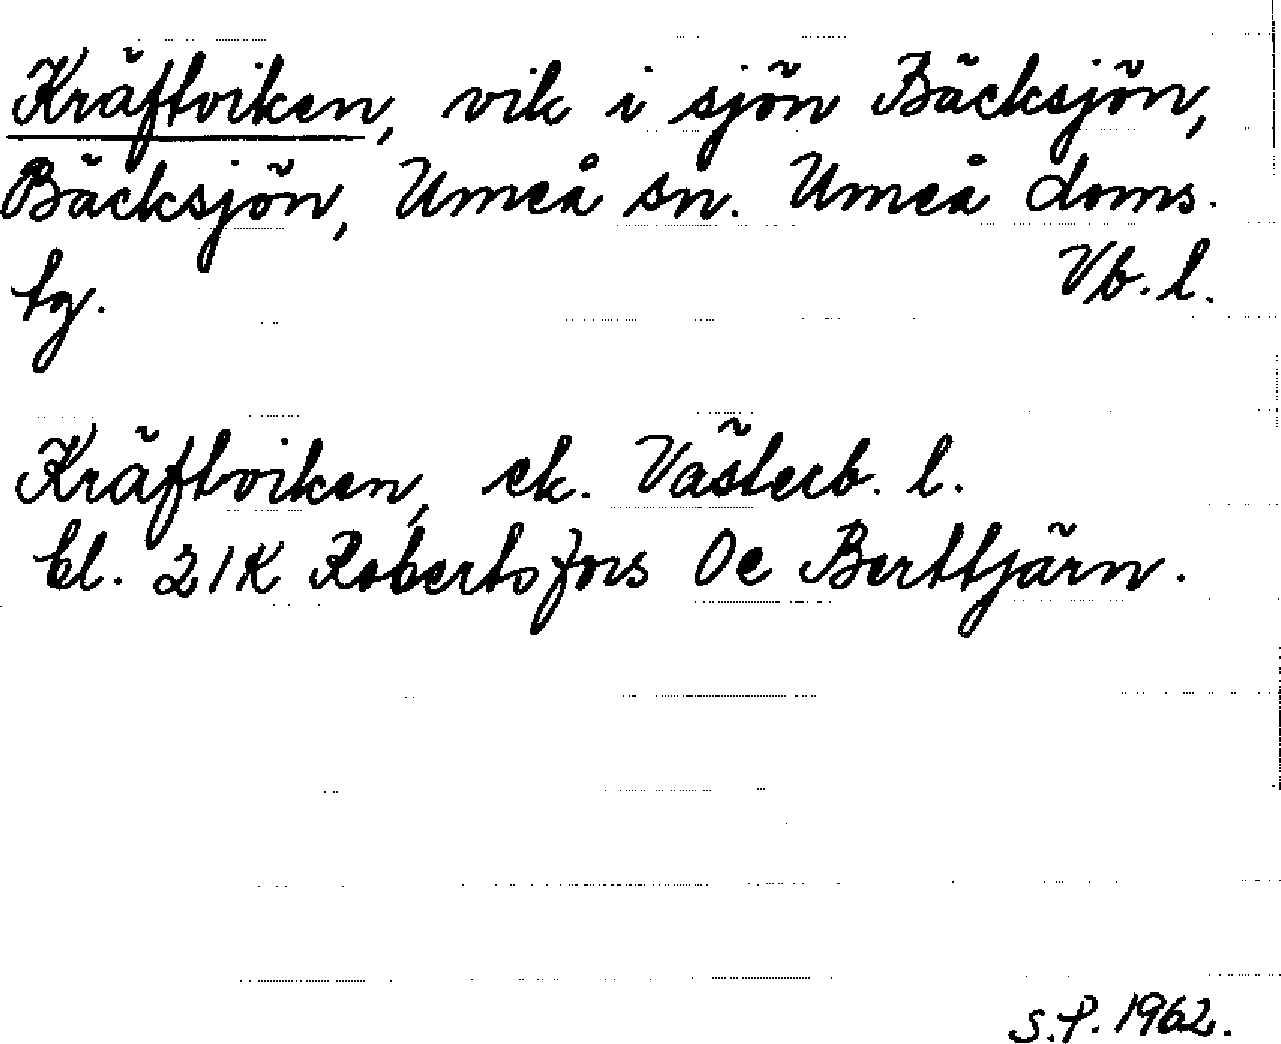 Kräftviken, vik i sjön Bäcksjön,
Bäcksjön, Umeå sn. Umeå doms.
tg. Vb. l.
Kräftviken, ek. Västerb. l.
bl. 21K Robertsfors 0e Berttjärn.
S.P. 1962.